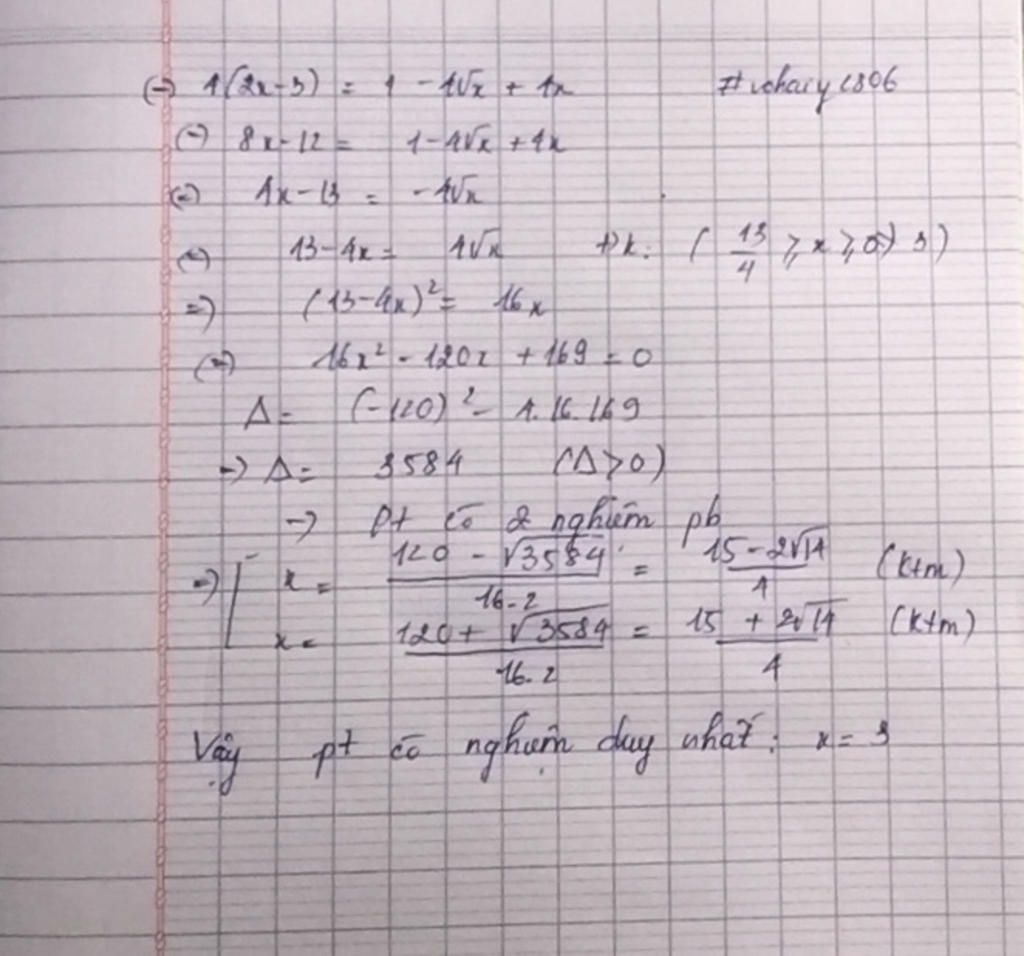 (=) 4(2x-3) = 1 - 4√x + 4x #vchaiy1806
(=) 8x-12 = 1-4√x + 4x
(=) 4x-13 = -4√x
(=) 13-4x = 4√x Đk: ( 13/4 ≥ x ≥ 3)
=) (13-4x)² = 16x
(=) 16x² - 120x + 169 = 0
Δ = (-120)² - 4.16.169
=) Δ = 3584 (Δ>0)
=) pt có 2 nghiệm pb
=) [ x = (120 - √3584)/(16.2) = (15 - 2√14)/4 (ktm)
x = (120 + √3584)/(16.2) = (15 + 2√14)/4 (ktm)
Vậy pt có nghiệm duy nhất: x = 3